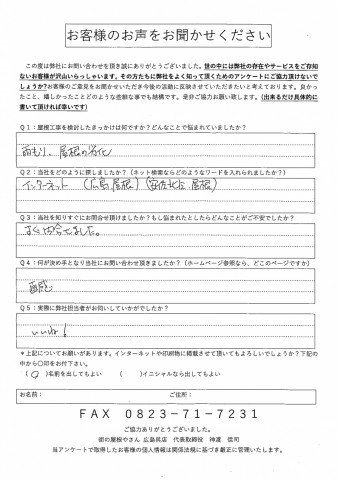 お客様のお声をお聞かせください
この度は弊社にお問い合わせを頂き誠にありがとうございました。世の中には弊社の存在やサービスをご存知
ないお客様が沢山いらっしゃいます。その方たちに弊社をよく知って頂くためのアンケートにご協力頂けないで
しょうか?お客様のご意見をお聞かせいただき今後の活動に反映させていただきたいと考えております。良かっ
たこと、嬉しかったことどのような些細な事でも結構です。是非ご協力お願い致します。(出来るだけ具体的に
書いて頂ければ幸いです)
Q1：屋根工事を検討したきっかけは何ですか?どんなことで悩まれていました?
雨もり、屋根の劣化
Q2：当社をどのように探しましたか?(ネット検索ならどのようなワードを入れられましたか?)
インターネット (広島、屋根) (安佐北区、屋根)
Q3：当社を知りすぐにお問合せ頂けましたか?もし悩まれたとしたらどんなことがご不安でしたか?
すぐ問合せました。
Q4：何が決め手となり当社にお問い合わせ頂きましたか?(ホームページ参照なら、どこのページですか)
直感
Q5：実際に弊社担当者がお伺いしていかがでしたか?
いいね!
*上記についてお願いがあります。インターネットや印刷物に掲載させて頂いてもよろしいでしょうか?下記の
中から〇印をお付下さい。
(〇)名前を出してもよい ( )イニシャルなら出してもよい
お名前： ご住所：
FAX 0823-71-7231
ご協力ありがとうございました。
街の屋根やさん 広島呉店 代表取締役 神渡 信司
当アンケートで取得したお客様の個人情報は関係法規に基づき厳正に管理いたします。